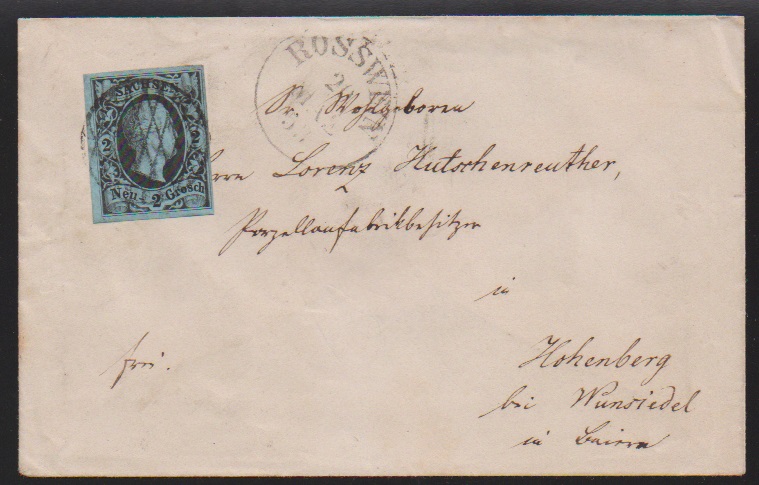 SACHSEN
2 2
Neu- 2 Grosch
ROSSWEIN
2
Sr. Wohlgeboren
Herrn Lorenz Hutschenreuther,
Porzellanfabrikbesitzer
in
Hohenberg
bei Wunsiedel
in Baiern
frei.